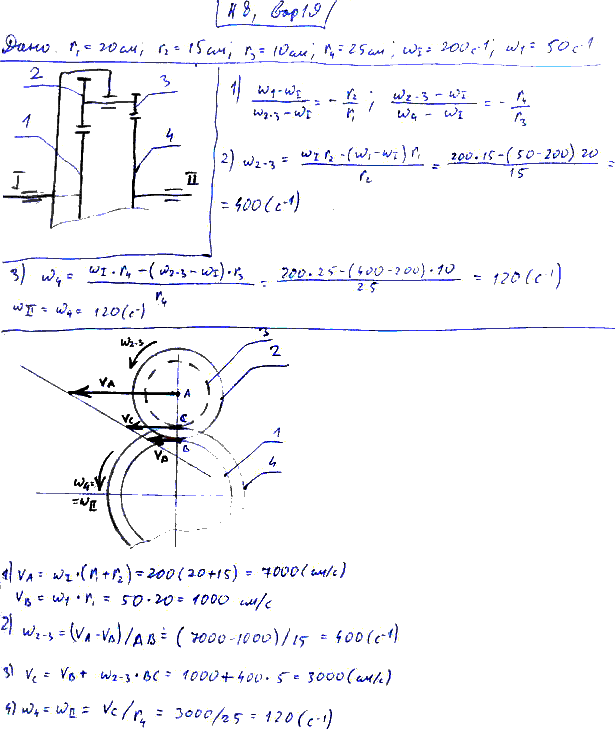 №8, Вар 19
Дано: r₁ = 20 см; r₂ = 15 см; r₃ = 10 см; r₄ = 25 см; ω_I = 200 с⁻¹; ω₁ = 50 с⁻¹
2 3
1 4
I II
1) (ω₁-ω_I)/(ω₂₋₃-ω_I) = - r₂/r₁ ; (ω₂₋₃-ω_I)/(ω₄-ω_I) = - r₄/r₃
2) ω₂₋₃ = (ω_I r₂-(ω₁-ω_I) r₁)/r₂ = (200·15-(50-200) 20)/15 =
= 400 (с⁻¹)
3) ω₄ = (ω_I·r₄-(ω₂₋₃-ω_I)·r₃)/r₄ = (200·25-(400-200)·10)/25 = 120 (с⁻¹)
ω_II = ω₄ = 120 (с⁻¹)
ω₂₋₃
3
2
V_A A
V_C C
V_B B
1
4
ω₄=
=ω_II
1) V_A = ω_I·(r₁+r₂) = 200(20+15) = 7000 (см/с)
V_B = ω₁·r₁ = 50·20 = 1000 см/с
2) ω₂₋₃ = (V_A-V_B)/AB = (7000-1000)/15 = 400 (с⁻¹)
3) V_C = V_B + ω₂₋₃·BC = 1000+400·5 = 3000 (см/с)
4) ω₄ = ω_II = V_C/r₄ = 3000/25 = 120 (с⁻¹)